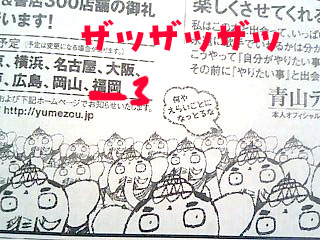 ザッザッザッ
&書店300店舗の御礼
います!
予定(予定は変更になる場合があります。)
京、横浜、名古屋、大阪、
、広島、岡山、福岡
3
および下記ホームページでお知らせいたします。
http://yumezou.jp
楽しくさせてくれる
私はこの本と出会って、
こうやって『自分がやりたい事
その前に『やりたい事』と出会
青山テ
本人オフィシャル
何や
えらいことに
なっとるな